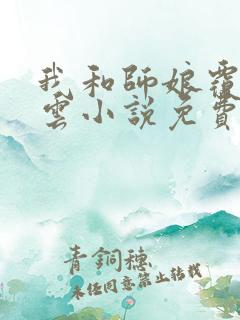 我和師娘蕓
雲小說免費
青銅穗
未任同意禁止转载